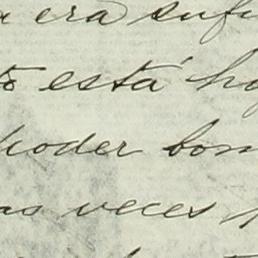 era sufi
to está ho
poder bon
as veces